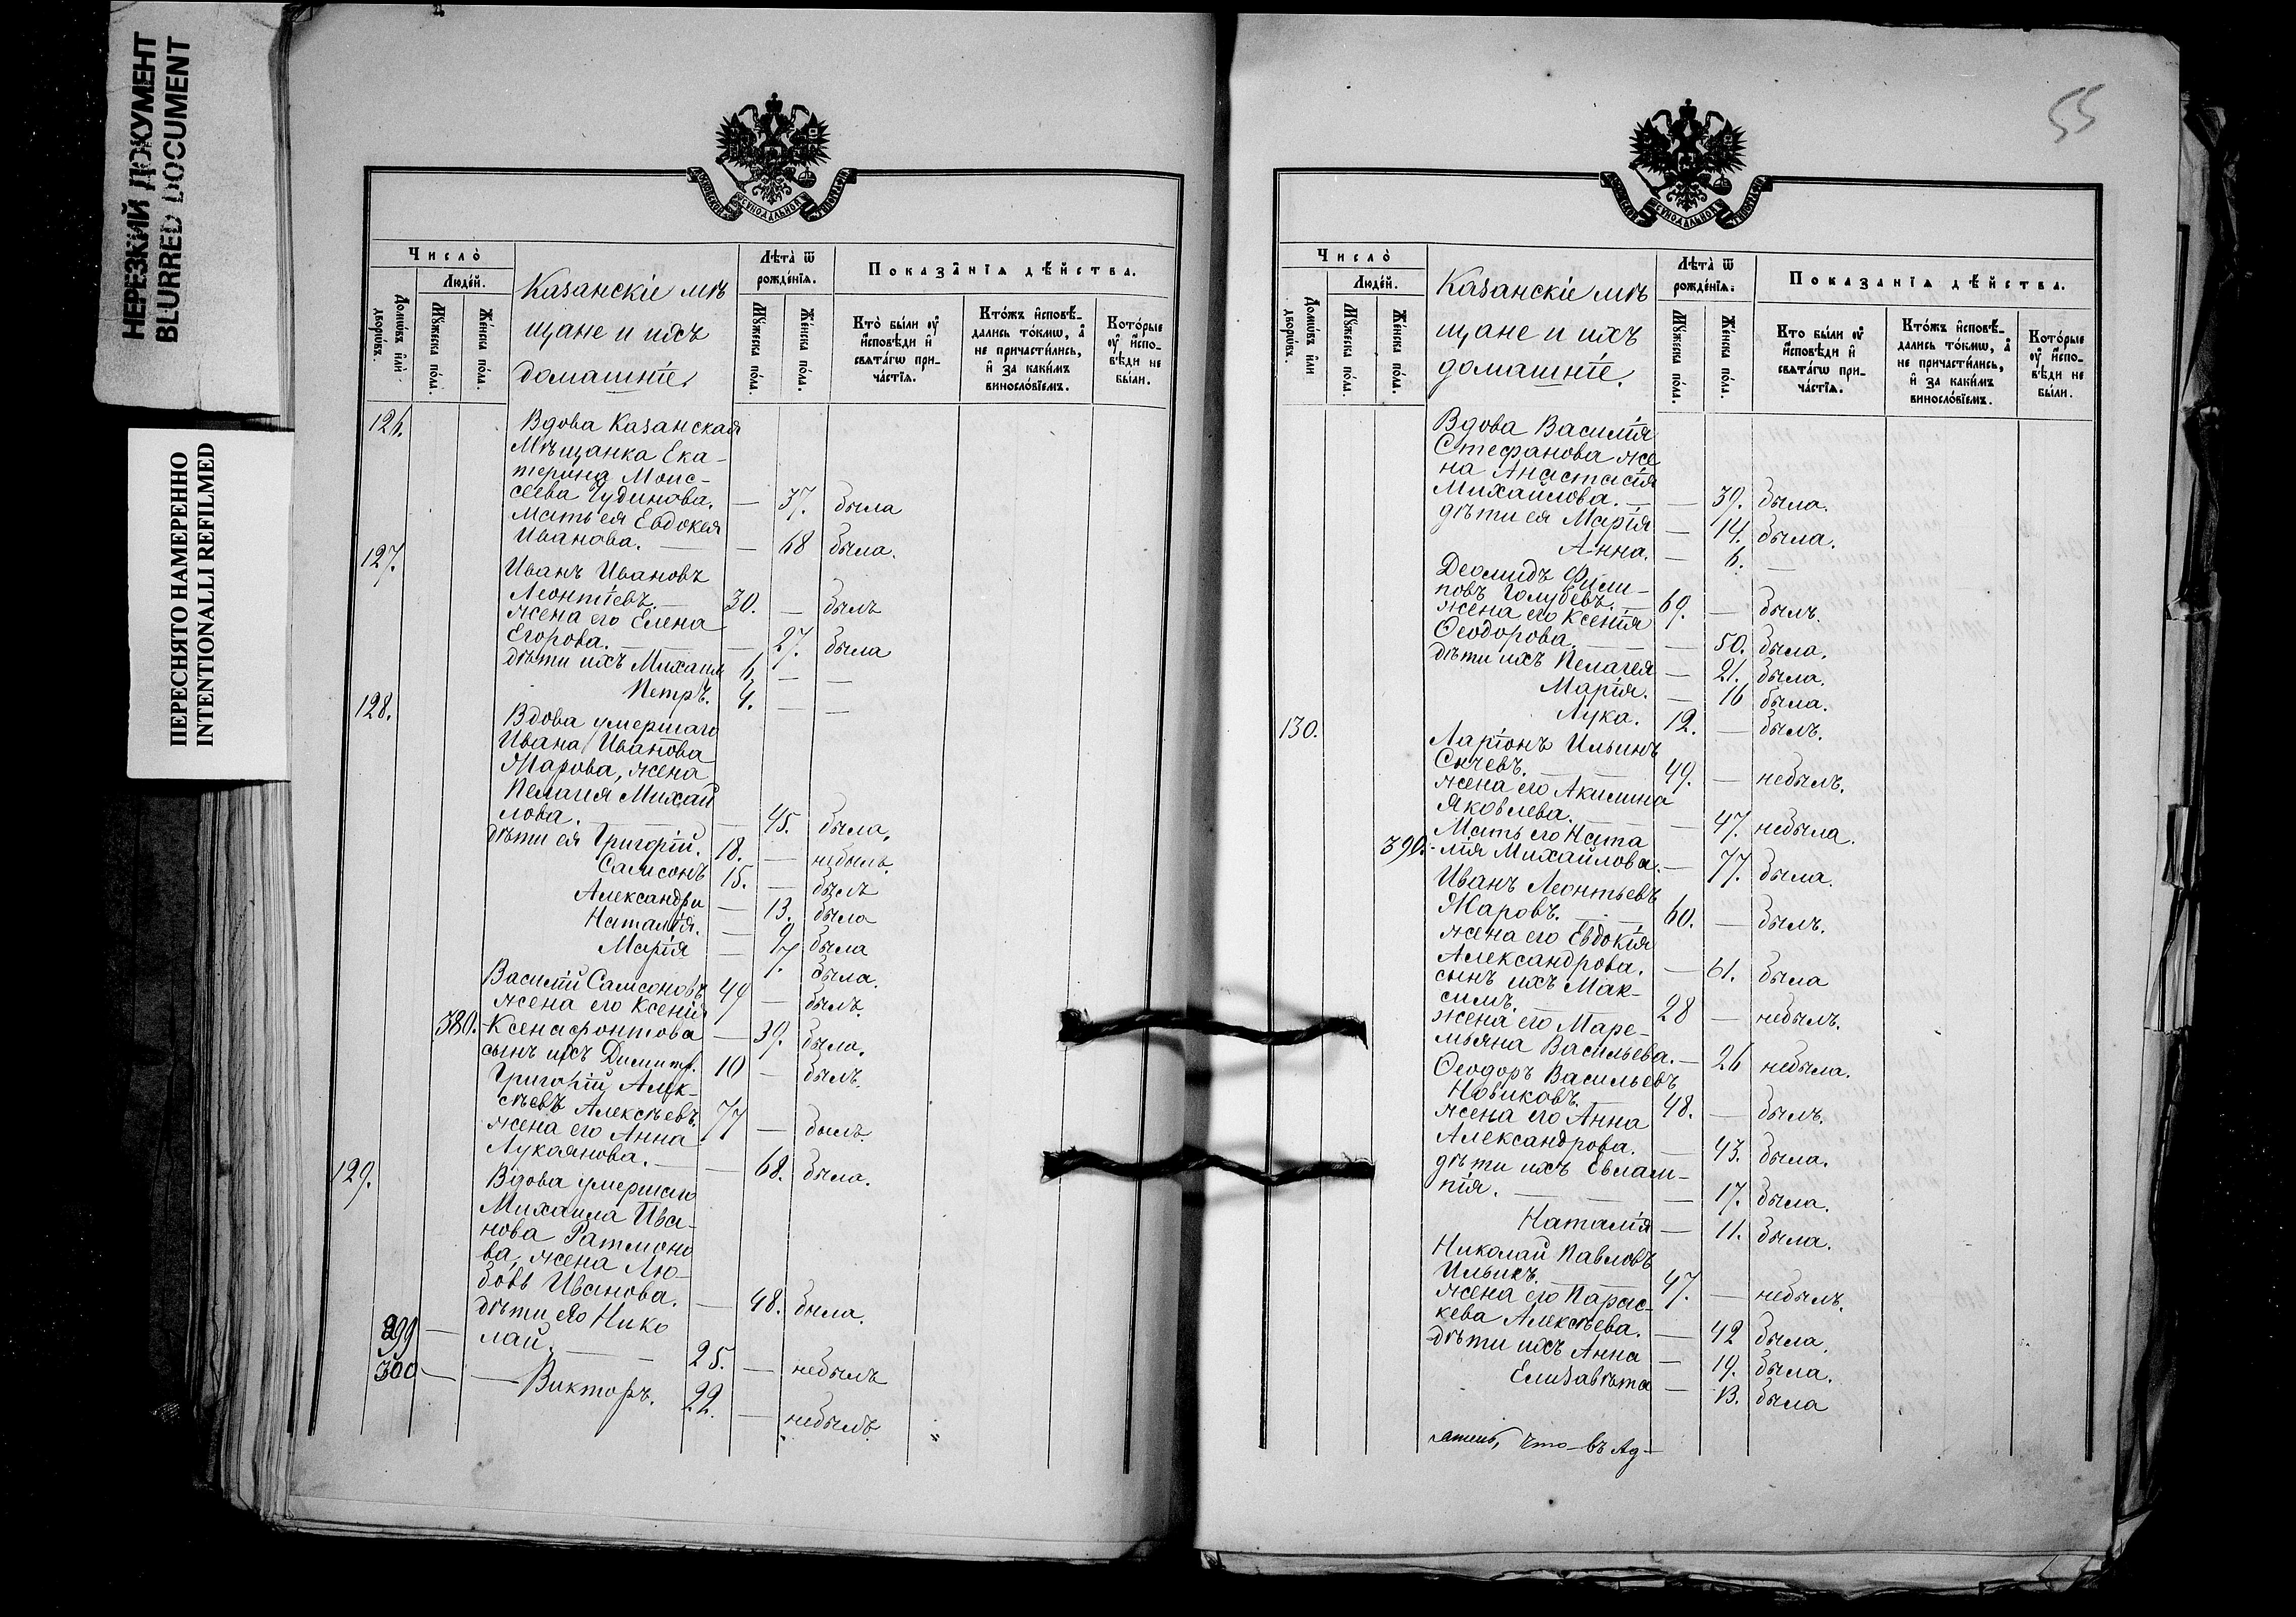 НЕРЕЗКИЙ ДОКУМЕНТ
BLURRED DOCUMENT
ПЕРЕСНЯТО НАМЕРЕННО
INTENTIONALLI REFILMED
МОСКОВСКОЙ СѴНОДАЛЬНОЙ ТИПОГРАФІИ
Число̀
Людѐй.
Домѡ́въ и҆лѝ дворѡ́въ.
Мꙋ́жеска по́ла.
Же́нска по́ла.
Казанскіе мѣ
щане и ихъ
домашніе.
Лѣта̀ ѿ рожде́нїѧ.
Мꙋ́жеска по́ла.
Же́нска по́ла.
Показа̑нїѧ дѣ́йства.
Кто̀ бы́ли ᲂу҆ и҆сповѣ́ди и҆ свѧта́гѡ при-ча́стїѧ.
Кто́жъ и҆сповѣ́-дались то́кмѡ, а҆ не причасти́лись, и҆ за каки́мъ винослόвїемъ.
Кото́рые ᲂу҆ и҆спо-вѣ́ди не бы́ли.
126. Вдова Казанская
Мѣщанка Ека-
терина Моис-
сеева Чудинова. — 37. была
мать ея Евдокея
Иванова. — — 68 была.
127. Иванъ Ивановъ
Леонтіевъ. — 30. — былъ
жена его Елена
Егорова. — — 27. была
дѣти ихъ Михаил 6. — —
Петръ. 4. — —
128. Вдова умершаго
Ивана Иванова
Жарова, жена
Пелагия Михай
лова. — — 45. была.
дѣти ея Григорій. 18. — небылъ.
Самсонъ 15. — былъ
Александра — 13. была
Наталія. — 9. была
Марія — 7. была.
Василій Самсоновъ 49 — былъ.
жена его Ксенія
380. Ксенафонтова — 39. была.
сынъ ихъ Димитр. 10 — былъ.
Григорій Алек-
сѣевъ Алексѣевъ. 77 — былъ.
жена его Анна
Лукаянова. — — 68. была.
129. Вдова умершаго
Михаила Ива-
нова Ратмоно
ва, жена Лю-
бовь Иванова. — 48. была.
дѣти его Нико
399 — лай. — — 25. — небылъ
300 — — Викторъ. 22. — небылъ.
55
МОСКОВСКОЙ СѴНОДАЛЬНОЙ ТИПОГРАФІИ
Число̀
Людѐй.
Домѡ́въ и҆лѝ дворѡ́въ.
Мꙋ́жеска по́ла.
Же́нска по́ла.
Казанскіе мѣ
щане и ихъ
домашніе.
Лѣта̀ ѿ рожде́нїѧ.
Мꙋ́жеска по́ла.
Же́нска по́ла.
Показа̑нїѧ дѣ́йства.
Кто бы́ли ᲂу҆ и҆сповѣ́ди и҆ свѧта́гѡ при-ча́стїѧ.
Кто́жъ и҆сповѣ́-дались то́кмѡ, а҆ не причасти́лись, и҆ за каки́мъ винослόвїемъ.
Кото́рые ᲂу҆ и҆спо-вѣ́ди не бы́ли.
Вдова Василія
Стефанова же
на Анастасія
Михайлова. — — 39. была.
дѣти ея Марія — 14. была.
Анна. — 6. —
Деомидъ Фили-
повъ Голубевъ. — 69. — былъ.
жена его Ксенія
Ѳеодорова. — — 50. была.
дѣти ихъ Пелагея — 21. была.
Марія. — 16 была.
Лука. 12. — былъ.
130. Ларіонъ Ильинъ
Сычевъ. — — 49. — небылъ.
жена его Акилина
Яковлева. — — 47. небыла.
Мать его Ната
390. лія Михайлова. — 77. была.
Иванъ Леонтьевъ
Жаровъ. — — 60. — былъ.
жена его Евдокія
Александрова. — 61. была
сынъ ихъ Мак-
симъ. 28 — небылъ.
жена его Маре-
мьяна Васильева. — 26 небыла.
Ѳеодоръ Васильевъ
Новиковъ. 48. — былъ.
жена его Анна
Александрова. — 43. была.
дѣти ихъ Евлам-
пія. — — — 17. была.
Наталія — 11. была.
Николай Павловъ
Ильинъ. 47. — небылъ.
жена его Парас-
кева Алексѣева. — 42 была.
дѣти ихъ Анна — 19. была.
Елизавѣта — 13. была
что въ Ад—